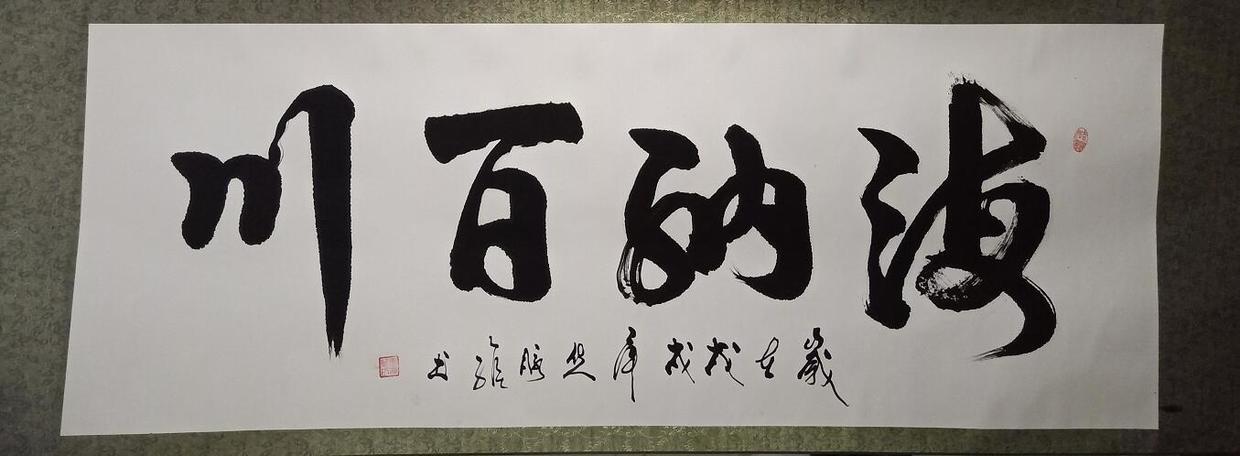 海纳百川
岁在戊戌年
书